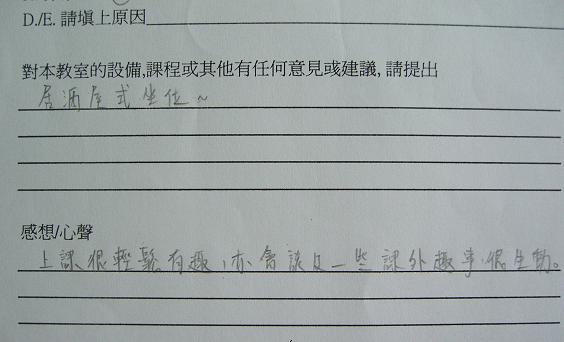 D./E. 請填上原因
對本教室的設備,課程或其他有任何意見或建議, 請提出
居酒屋式坐位~
感想/心聲
上課很輕鬆有趣,亦會談及一些課外趣事,很生動。